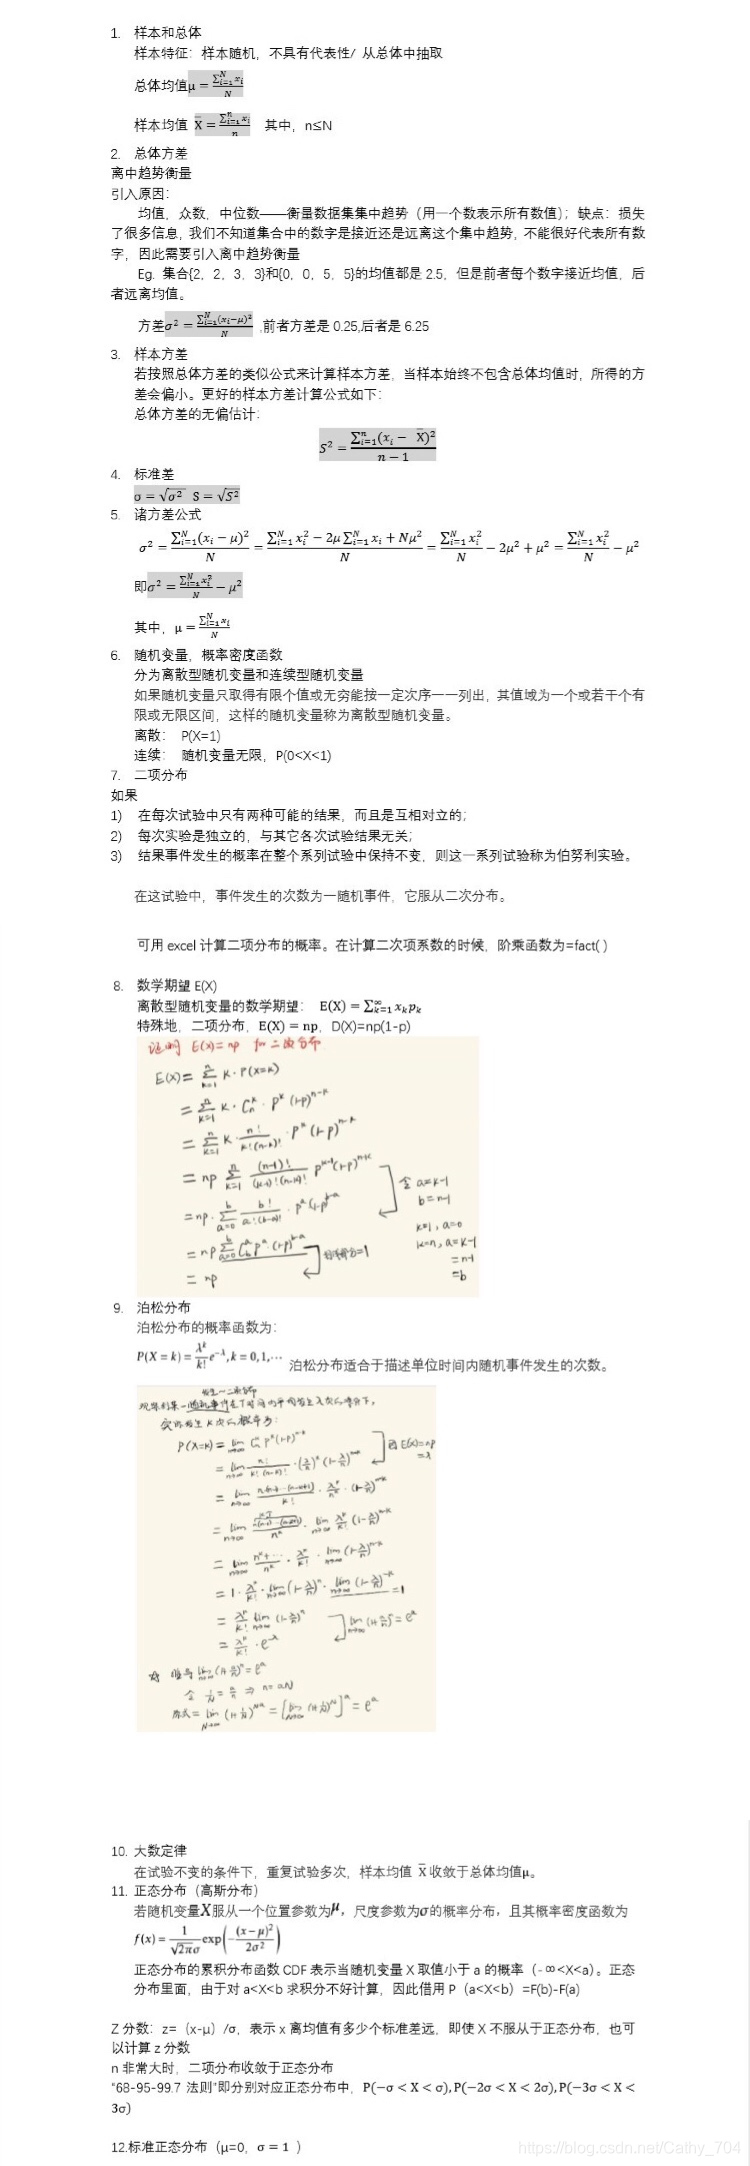 1. 样本和总体
样本特征：样本随机，不具有代表性/ 从总体中抽取
总体均值μ = \frac{∑_{i=1}^{N} x_i}{N}
样本均值 X̄ = \frac{∑_{i=1}^{n} x_i}{n} 其中，n≤N
2. 总体方差
离中趋势衡量
引入原因：
均值，众数，中位数——衡量数据集集中趋势（用一个数表示所有数值）；缺点：损失
了很多信息，我们不知道集合中的数字是接近还是远离这个集中趋势，不能很好代表所有数
字，因此需要引入离中趋势衡量
Eg. 集合{2，2，3，3}和{0，0，5，5}的均值都是 2.5，但是前者每个数字接近均值，后
者远离均值。
方差σ² = \frac{∑_{i=1}^{N}(x_i−μ)²}{N} ,前者方差是 0.25,后者是 6.25
3. 样本方差
若按照总体方差的类似公式来计算样本方差，当样本始终不包含总体均值时，所得的方
差会偏小。更好的样本方差计算公式如下：
总体方差的无偏估计：
S² = \frac{∑_{i=1}^{n}(x_i − X̄)²}{n − 1}
4. 标准差
σ = √σ² S = √S²
5. 诸方差公式
σ² = \frac{∑_{i=1}^{N}(x_i − μ)²}{N} = \frac{∑_{i=1}^{N} x_i² − 2μ∑_{i=1}^{N} x_i + Nμ²}{N} = \frac{∑_{i=1}^{N} x_i²}{N} − 2μ² + μ² = \frac{∑_{i=1}^{N} x_i²}{N} − μ²
即σ² = \frac{∑_{i=1}^{N} x_i²}{N} − μ²
其中，μ = \frac{∑_{i=1}^{N} x_i}{N}
6. 随机变量，概率密度函数
分为离散型随机变量和连续型随机变量
如果随机变量只取得有限个值或无穷能按一定次序一一列出，其值域为一个或若干个有
限或无限区间，这样的随机变量称为离散型随机变量。
离散： P(X=1)
连续： 随机变量无限，P(0<X<1)
7. 二项分布
如果
1) 在每次试验中只有两种可能的结果，而且是互相对立的；
2) 每次实验是独立的，与其它各次试验结果无关；
3) 结果事件发生的概率在整个系列试验中保持不变，则这一系列试验称为伯努利实验。
在这试验中，事件发生的次数为一随机事件，它服从二次分布。
可用 excel 计算二项分布的概率。在计算二次项系数的时候，阶乘函数为=fact( )
8. 数学期望 E(X)
离散型随机变量的数学期望： E(X) = ∑_{k=1}^{∞} x_k p_k
特殊地，二项分布，E(X) = np，D(X)=np(1-p)
证明 E(X)= np
E(X)= ∑_{k=1}^{n} k·P(X=k)
= ∑_{k=1}^{n} k·C_n^k·p^k (1-p)^{n-k}
= ∑_{k=1}^{n} k \frac{n!}{k!(n-k)!}·p^k (1-p)^{n-k}
= np ∑_{k=1}^{n} \frac{(n-1)!}{(k-1)!(n-k)!} p^{k-1}(1-p)^{n-k}
令 a=k-1
b=n-1
= np·∑_{a=0}^{b} \frac{b!}{a!(b-a)!}·p^a (1-p)^{b-a}
k=1, a=0
k=n, a=k-1
=n-1
=b
= np ∑_{a=0}^{b} C_b^a p^a·(1-p)^{b-a}
= np
9. 泊松分布
泊松分布的概率函数为：
P(X = k) = \frac{λ^k}{k!} e^{−λ}, k = 0,1,⋯ 泊松分布适合于描述单位时间内随机事件发生的次数。
P(X=k) = lim_{n→∞} C_n^k p^k (1-p)^{n-k}
因 E(X)=np
=λ
= lim_{n→∞} \frac{n!}{k!(n-k)!}·(\frac{λ}{n})^k (1-\frac{λ}{n})^{n-k}
= 1·\frac{λ^k}{k!}·lim_{n→∞}(1-\frac{λ}{n})^n·lim_{n→∞}(1-\frac{λ}{n})^{-k}
=1
= \frac{λ^k}{k!} lim_{n→∞}(1-\frac{λ}{n})^n
lim_{n→∞}(1+\frac{a}{n})^n = e^a
= \frac{λ^k}{k!}·e^{-λ}
10. 大数定律
在试验不变的条件下，重复试验多次，样本均值 X̄ 收敛于总体均值μ。
11. 正态分布（高斯分布）
若随机变量X服从一个位置参数为μ，尺度参数为σ的概率分布，且其概率密度函数为
f(x) = \frac{1}{√(2π)σ} exp(−\frac{(x − μ)²}{2σ²})
正态分布的累积分布函数 CDF 表示当随机变量 X 取值小于 a 的概率（- ∞<X<a）。正态
分布里面，由于对 a<X<b 求积分不好计算，因此借用 P（a<X<b）=F(b)-F(a)
Z 分数：z=（x-μ）/σ，表示 x 离均值有多少个标准差远，即使 X 不服从于正态分布，也可
以计算 z 分数
n 非常大时，二项分布收敛于正态分布
“68-95-99.7 法则”即分别对应正态分布中，P(−σ < X < σ), P(−2σ < X < 2σ), P(−3σ < X <
3σ)
12.标准正态分布（μ=0，σ = 1 ）
https://blog.csdn.net/Cathy_704